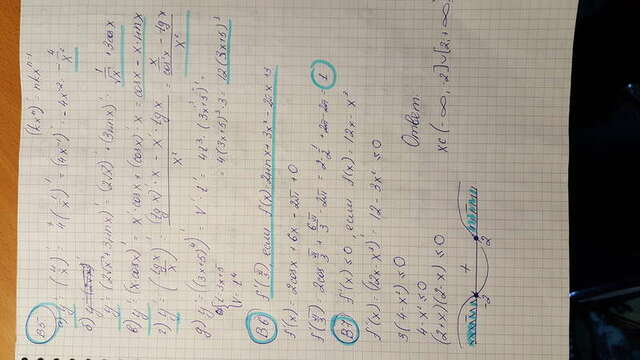 (kxⁿ)' = nkxⁿ⁻¹
B5
а) y' = (4/x)' = 4(1/x)' = (4x⁻¹)' = -4x⁻² = -4/x²
б)
y' = (2√x + 3sinx)' = (2√x)' + (3sinx)' = 1/√x + 3cosx
в) y' = (x cosx)' = x'·cosx + (cosx)'·x = cosx - x·sinx
г) y' = (tgx/x)' = ((tgx)'·x - x'·tgx)/x² = (x/cos²x - tgx)/x²
д) y' = ((3x+5)⁴)' = V'·t' = 4t³·(3x+5)' =
t = 3x+5
V = t⁴
= 4(3x+5)³·3 = 12(3x+5)³
B6 f'(π/3), если f(x) = 2sinx + 3x² - 2πx + 3
f'(x) = 2cosx + 6x - 2π + 0
f'(π/3) = 2cos π/3 + 6π/3 - 2π = 2·1/2 + 2π - 2π = 1
B7 f'(x) ≤ 0, если f(x) = 12x - x³
f'(x) = (12x - x³)' = 12 - 3x² ≤ 0
3(4 - x²) ≤ 0
4 - x² ≤ 0
(2+x)(2-x) ≤ 0
Ответ:
x ∈ (-∞, -2] ∪ [2, +∞)
- + -
-2 2